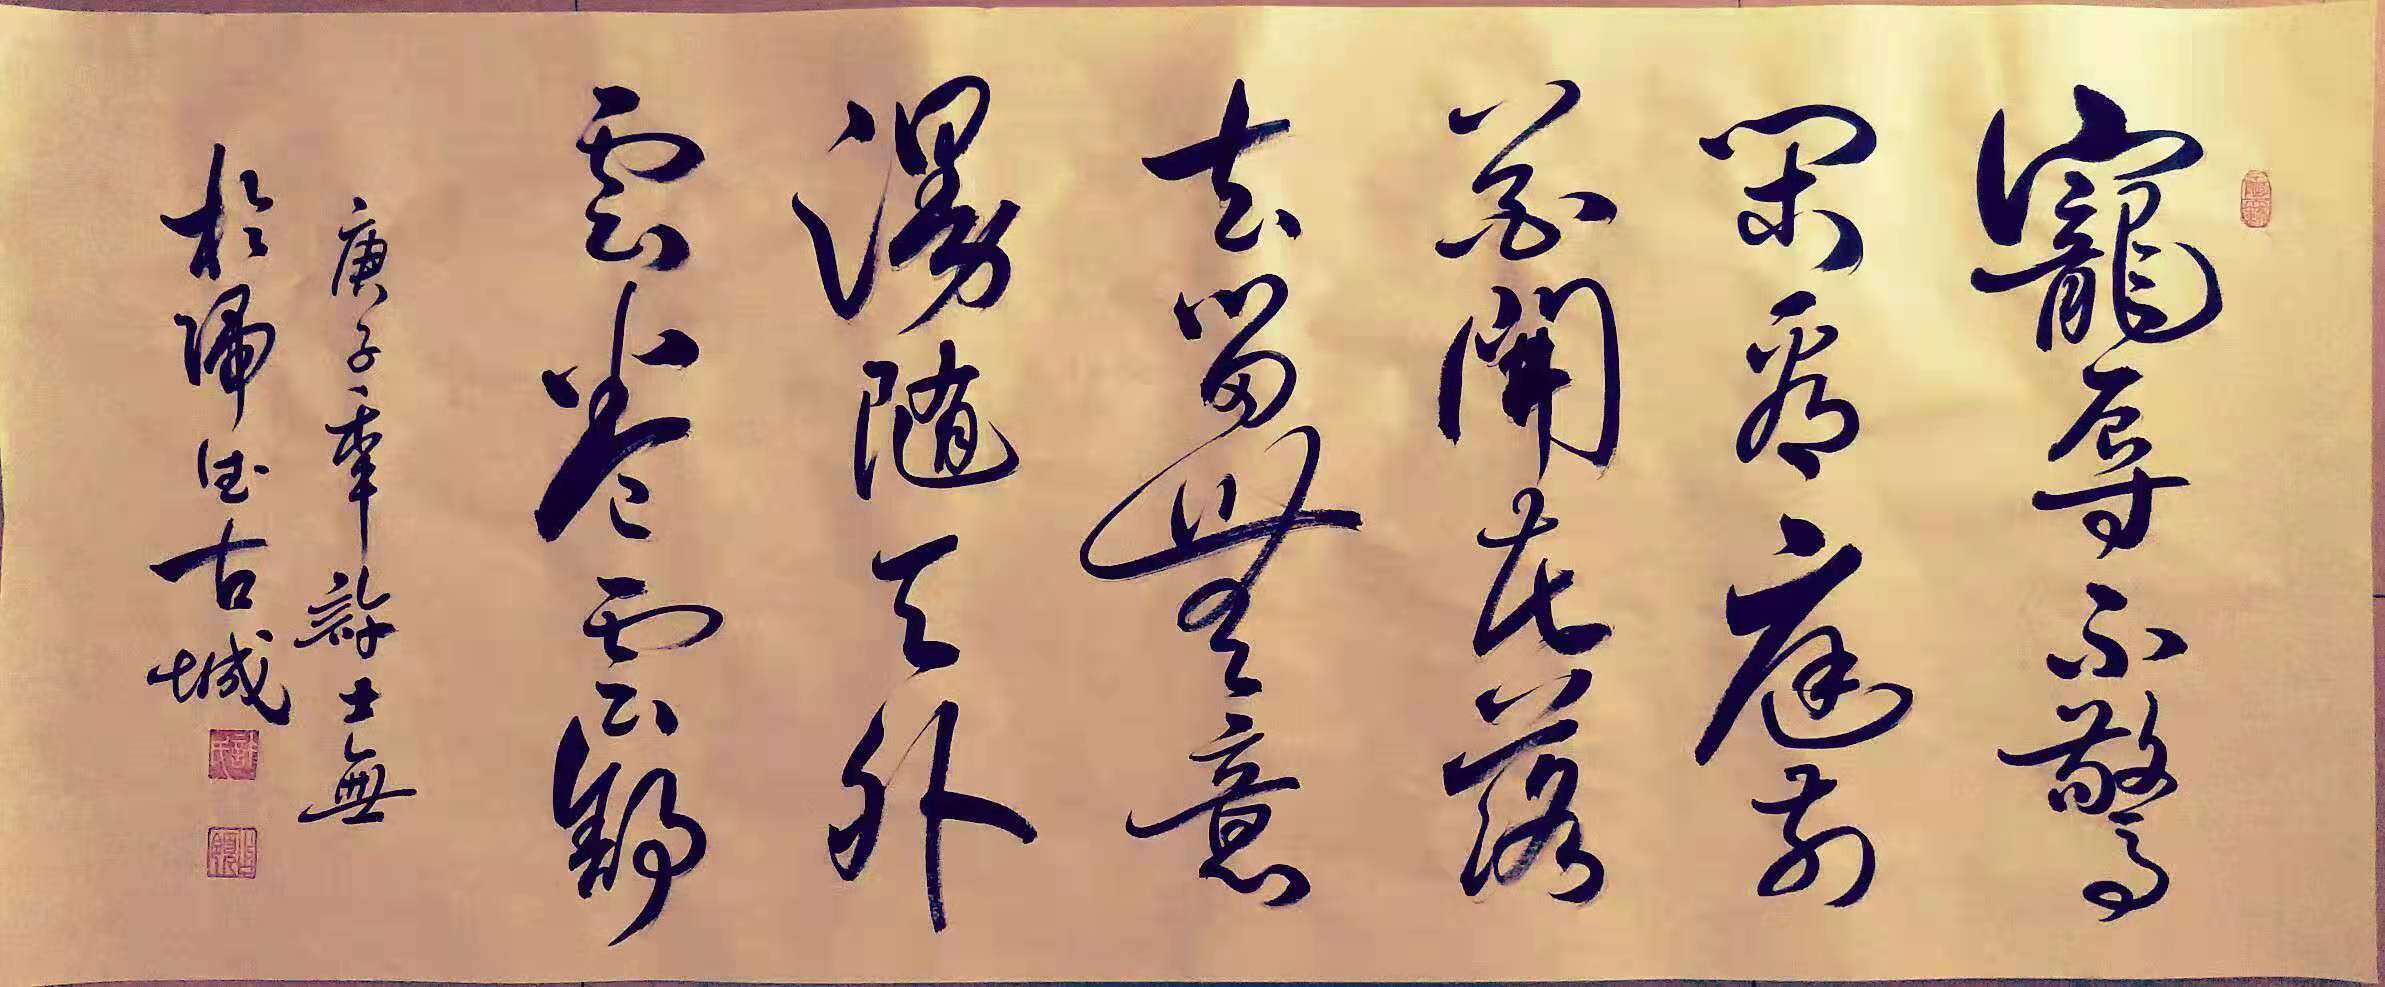 寵辱不驚
閑看庭前
花開花落
去留無意
漫隨天外
雲卷雲舒
庚子年許士無
於歸德古城
許氏